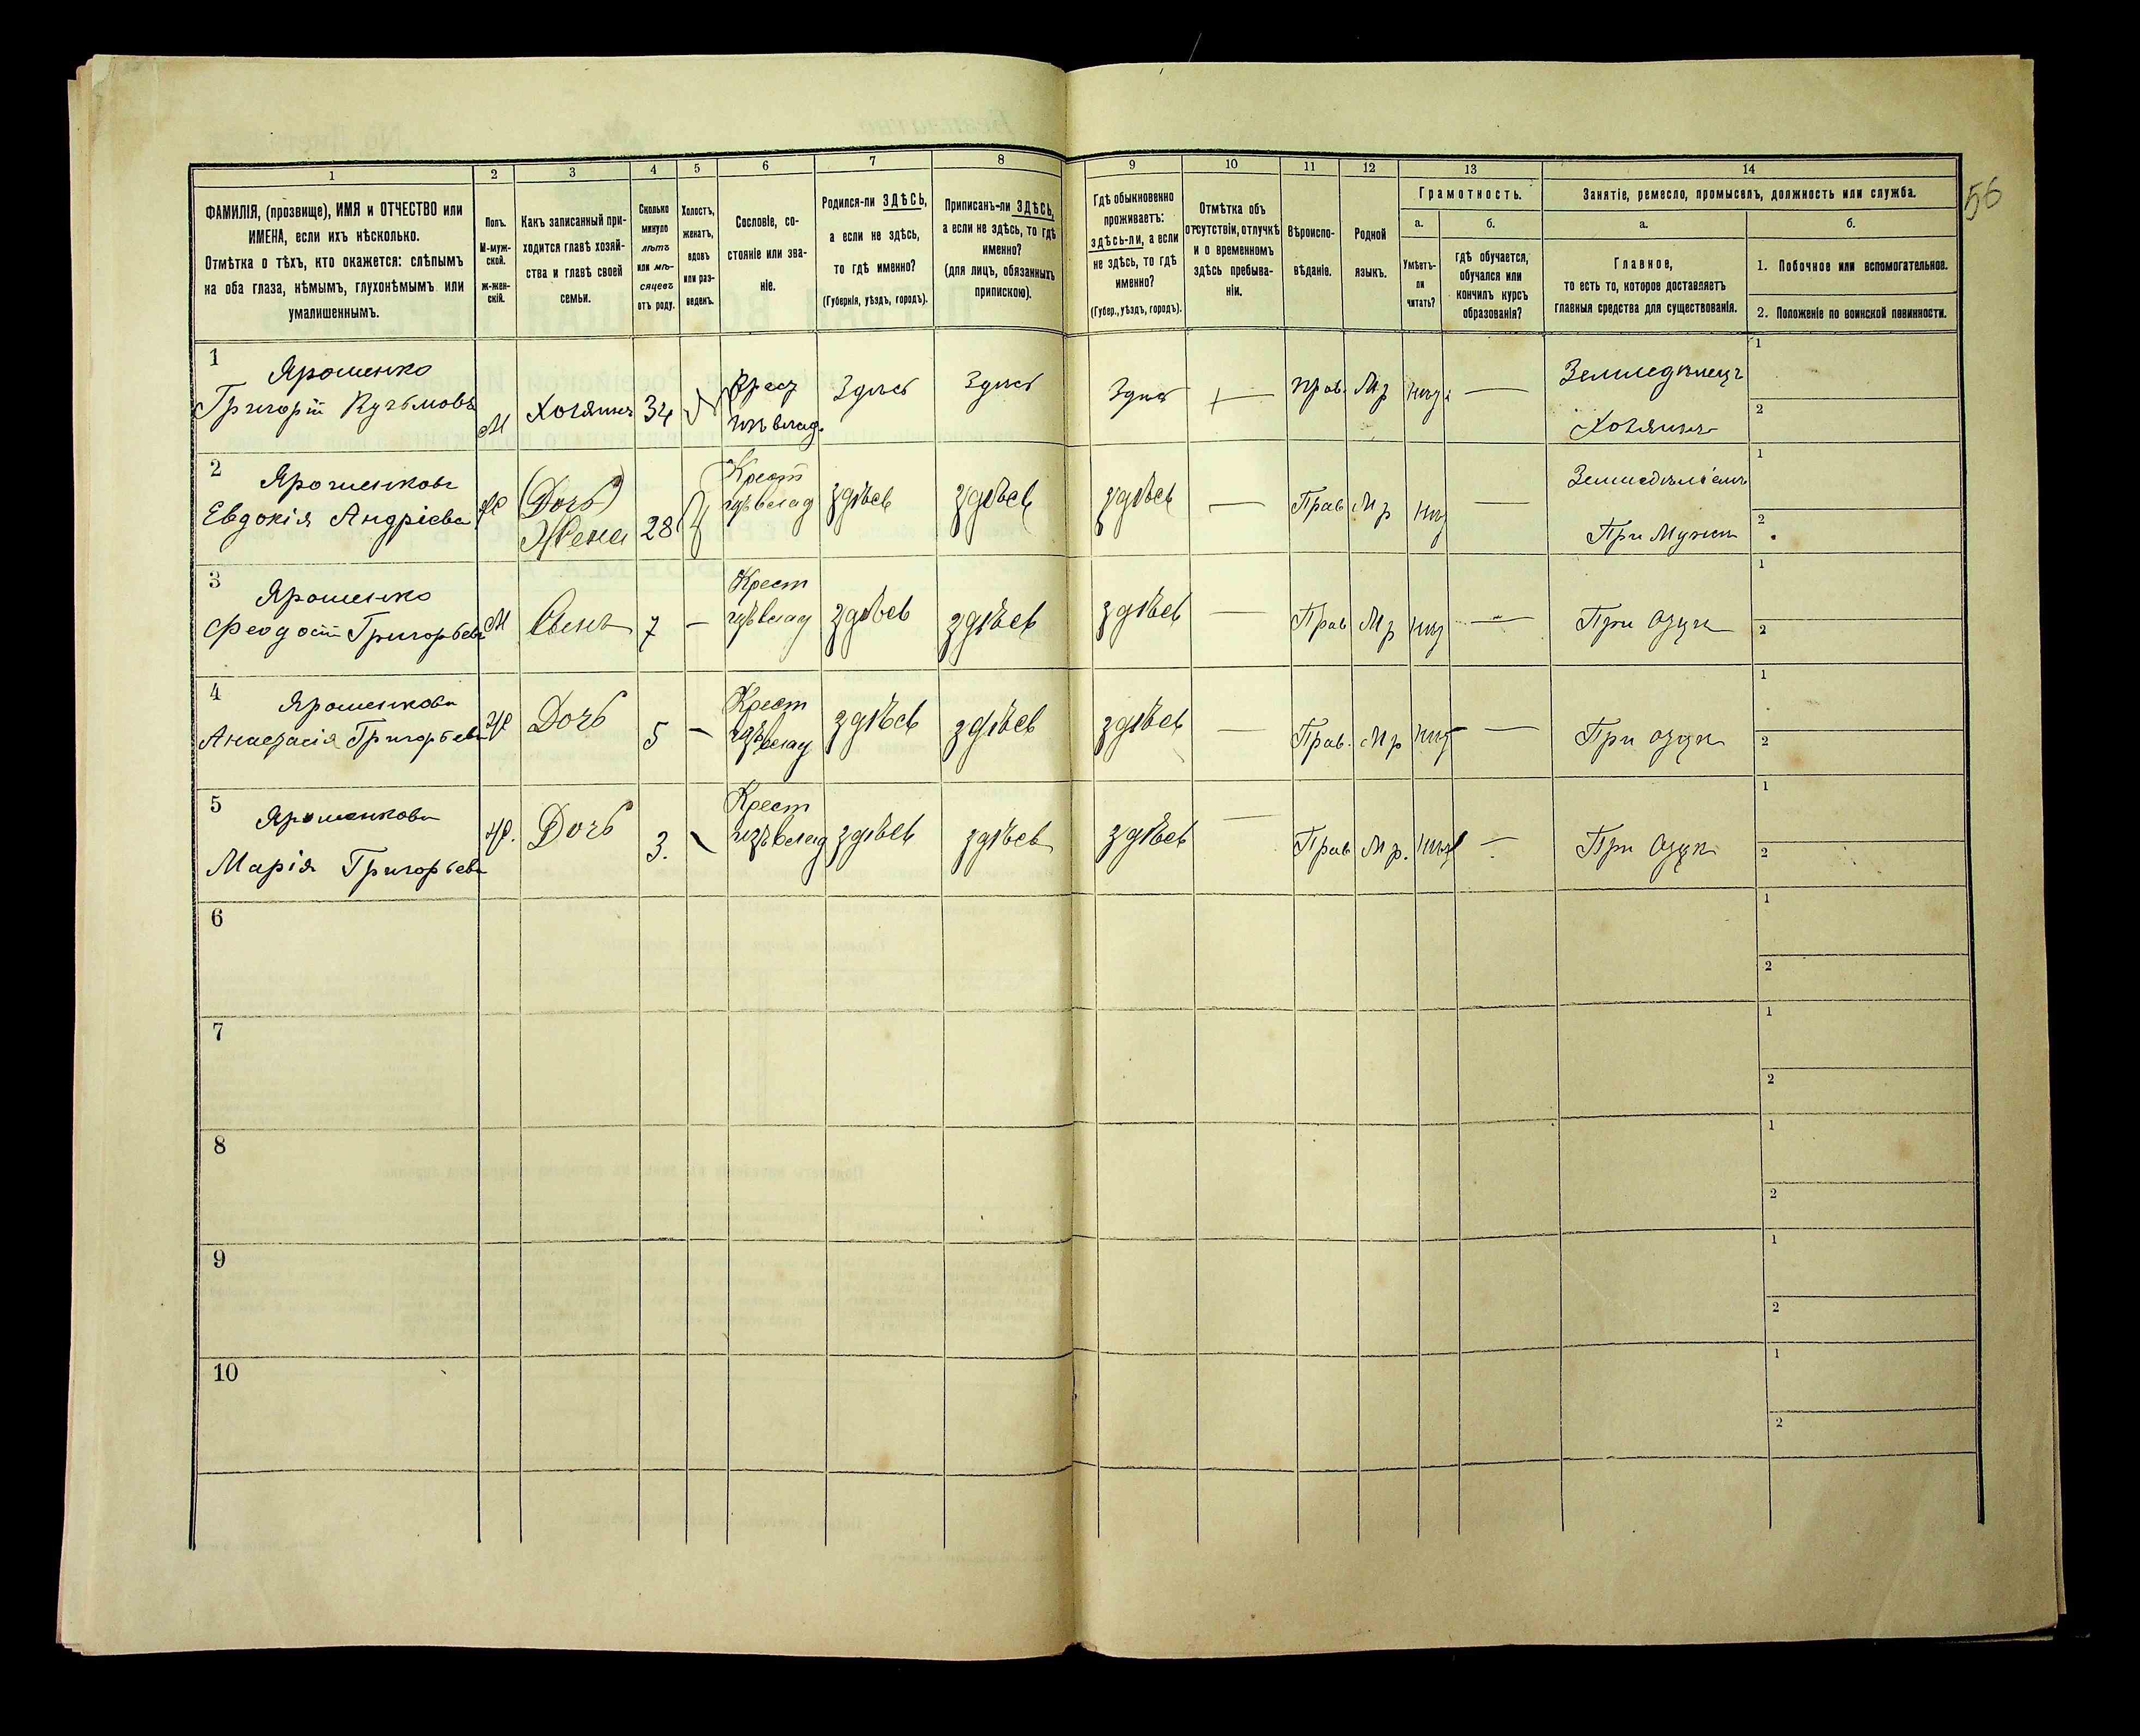 56
1 2 3 4 5 6 7 8 9 10 11 12 13 14
ФАМИЛІЯ, (прозвище), ИМЯ и ОТЧЕСТВО или
ИМЕНА, если ихъ нѣсколько.
Отмѣтка о тѣхъ, кто окажется: слѣпымъ
на оба глаза, нѣмымъ, глухонѣмымъ или
умалишеннымъ.
Полъ.
М-муж-
ской.
ж-жен-
скій.
Какъ записанный при-
ходится главѣ хозяй-
ства и главѣ своей
семьи.
Сколько
минуло
лѣтъ
или мѣ-
сяцевъ
отъ роду.
Холостъ,
женатъ,
вдовъ
или раз-
веденъ.
Сословіе, со-
стояніе или зва-
ніе.
Родился-ли ЗДѢСЬ,
а если не здѣсь,
то гдѣ именно?
(Губернія, уѣздъ, городъ).
Приписанъ-ли ЗДѢСЬ,
а если не здѣсь, то гдѣ
именно?
(для лицъ, обязанныхъ
припискою).
Гдѣ обыкновенно
проживаетъ:
здѣсь-ли, а если
не здѣсь, то гдѣ
именно?
(Губер., уѣздъ, городъ).
Отмѣтка объ
отсутствіи, отлучкѣ
и о временномъ
здѣсь пребыва-
ніи.
Вѣроиспо-
вѣданіе.
Родной
языкъ.
Грамотность.
а.
Умѣетъ-
ли
читать?
б.
гдѣ обучается,
обучался или
кончилъ курсъ
образованія?
Занятіе, ремесло, промыселъ, должность или служба.
а.
Главное,
то есть то, которое доставляетъ
главныя средства для существованія.
б.
1. Побочное или вспомогательное.
2. Положеніе по воинской повинности.
1 Ярошенко
Григорій Кузьмовъ
М Хозяинъ 34 Крест
Здѣсь Здѣсь Здѣсь — Прав. Мр — Земледѣлецъ
Хозяинъ
1
2
2 Ярошенкова
Евдокія Андріева
Ж (Дочь)
Жена 28 Крест
здѣсь здѣсь здѣсь — Прав Мр —
При Мужѣ
1
2
3 Ярошенко
Феодосій Григорьевъ
М Сынъ 7 — Крест
здѣсь здѣсь здѣсь — Прав Мр — При отцѣ
1
2
4 Ярошенкова
Анастасія Григорьева
Ж Дочь 5 — Крест
здѣсь здѣсь здѣсь — Прав. Мр — При отцѣ
1
2
5 Ярошенкова
Марія Григорьева
Ж. Дочь 3. Крест
здѣсь здѣсь здѣсь — Прав Мр. — При отцѣ
1
2
6
1
2
7
1
2
8
1
2
9
1
2
10
1
2